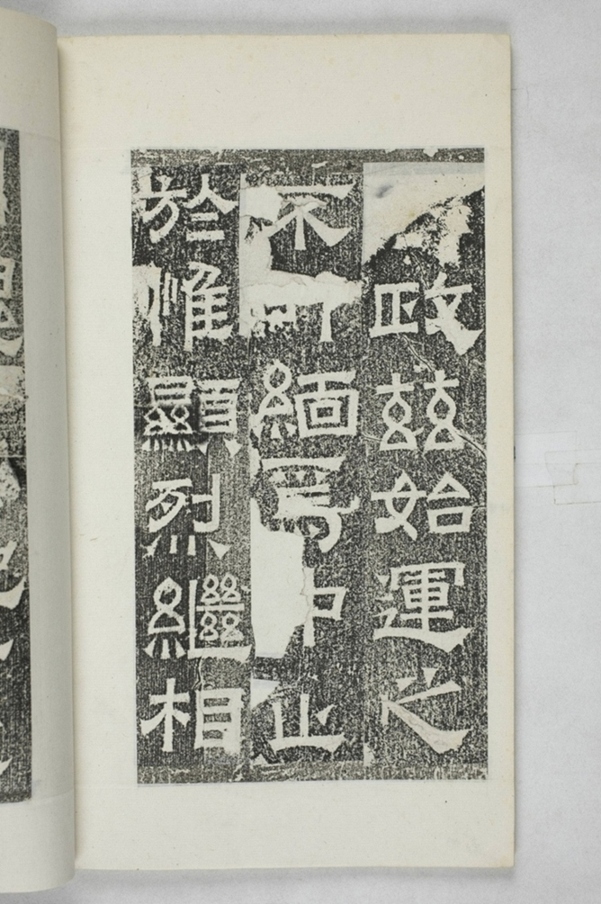 政茲始運之
不可緬焉中止
於惟顯烈繼相